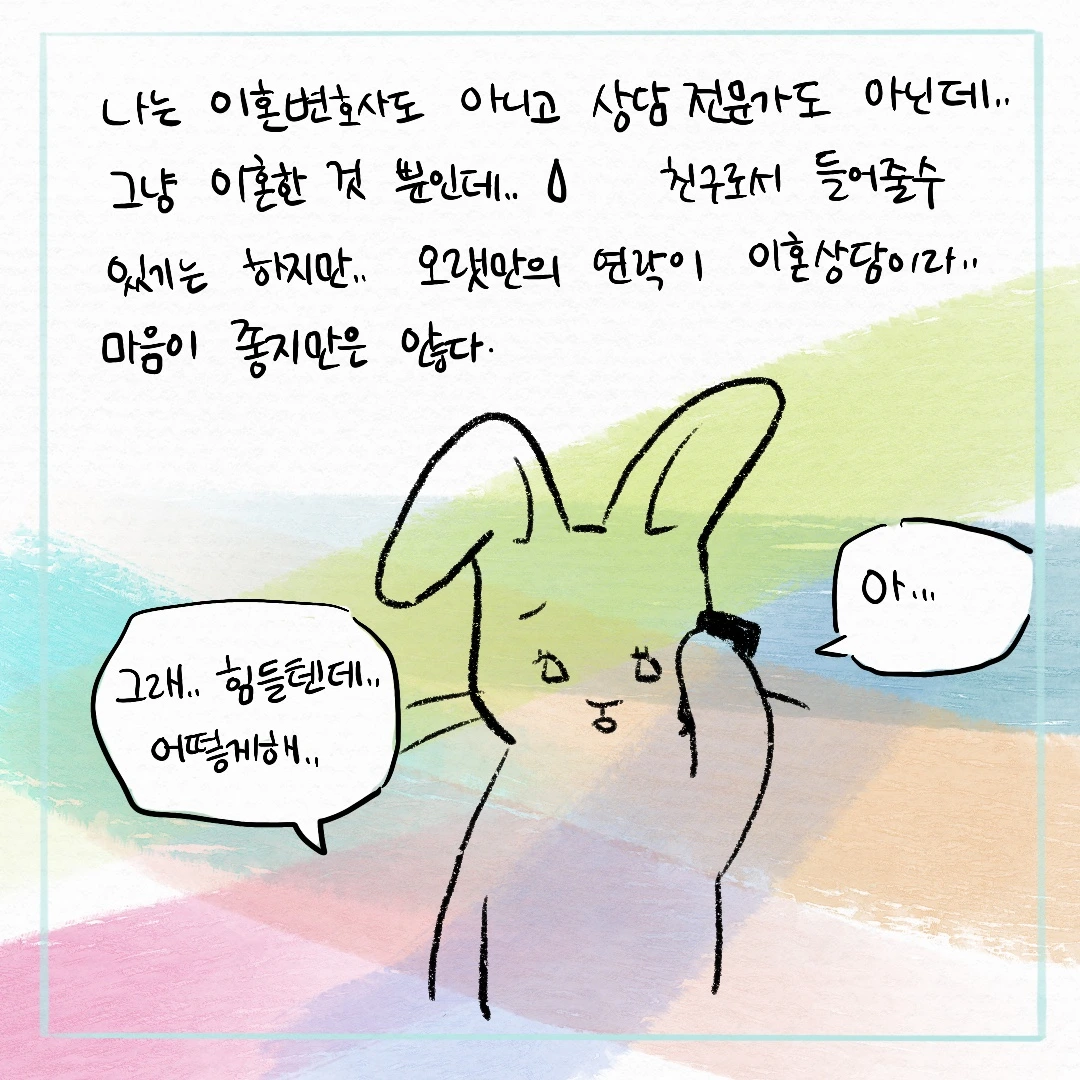 나는 이혼변호사도 아니고 상담 전문가도 아닌데..
그냥 이혼한 것 뿐인데.. 친구로서 들어줄수
있기는 하지만.. 오랫만의 연락이 이혼상담이라..
마음이 좋지만은 않다.
아...
그래.. 힘들텐데..
어떻게해..